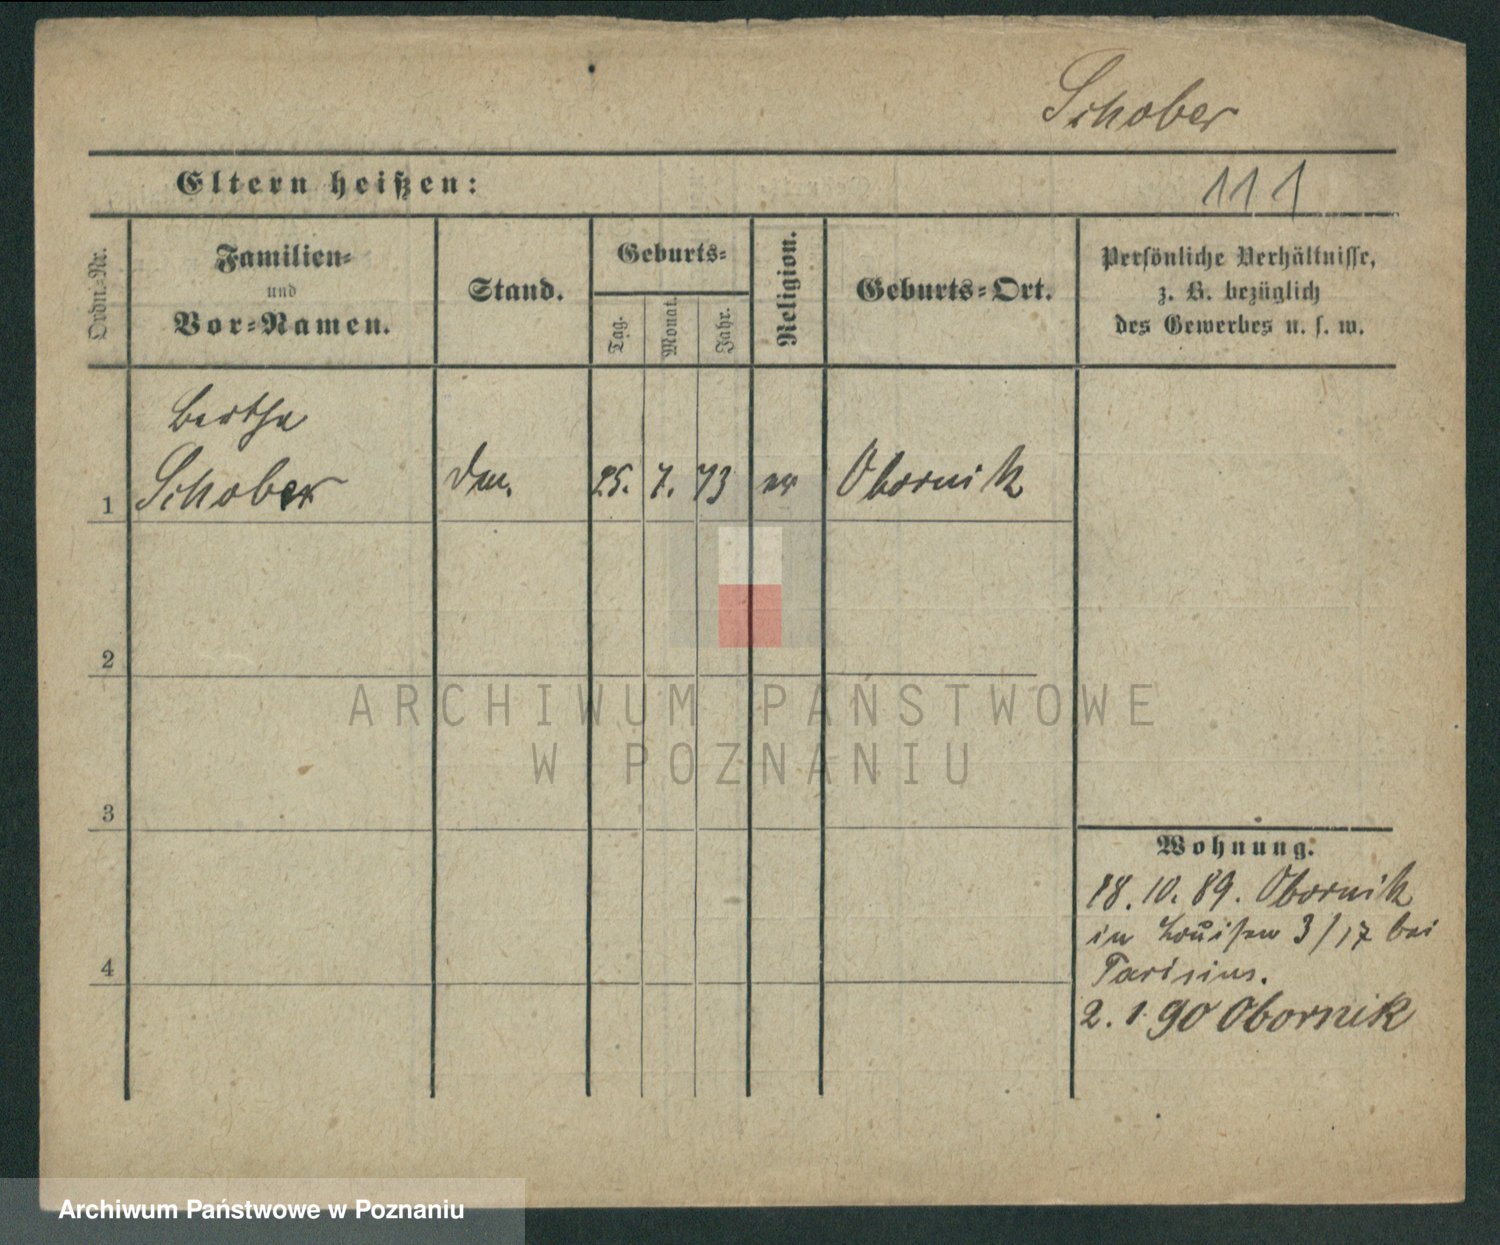 Schober
Eltern heißen:
111
Ordn.-Nr.
Familien-
und
Vor-Namen.
Stand.
Geburts-
Tag.
Monat.
Jahr.
Religion.
Geburts-Ort.
Persönliche Verhältnisse,
z. B. bezüglich
des Gewerbes u. s. w.
Bertha
1 Schober 25. 7. 73 Obornik
2
3
4
Wohnung.
18. 10. 89. Obornik
in Louisen 3/17 bei
2. 1. 90 Obornik
ARCHIWUM PAŃSTWOWE
W POZNANIU
Archiwum Państwowe w Poznaniu